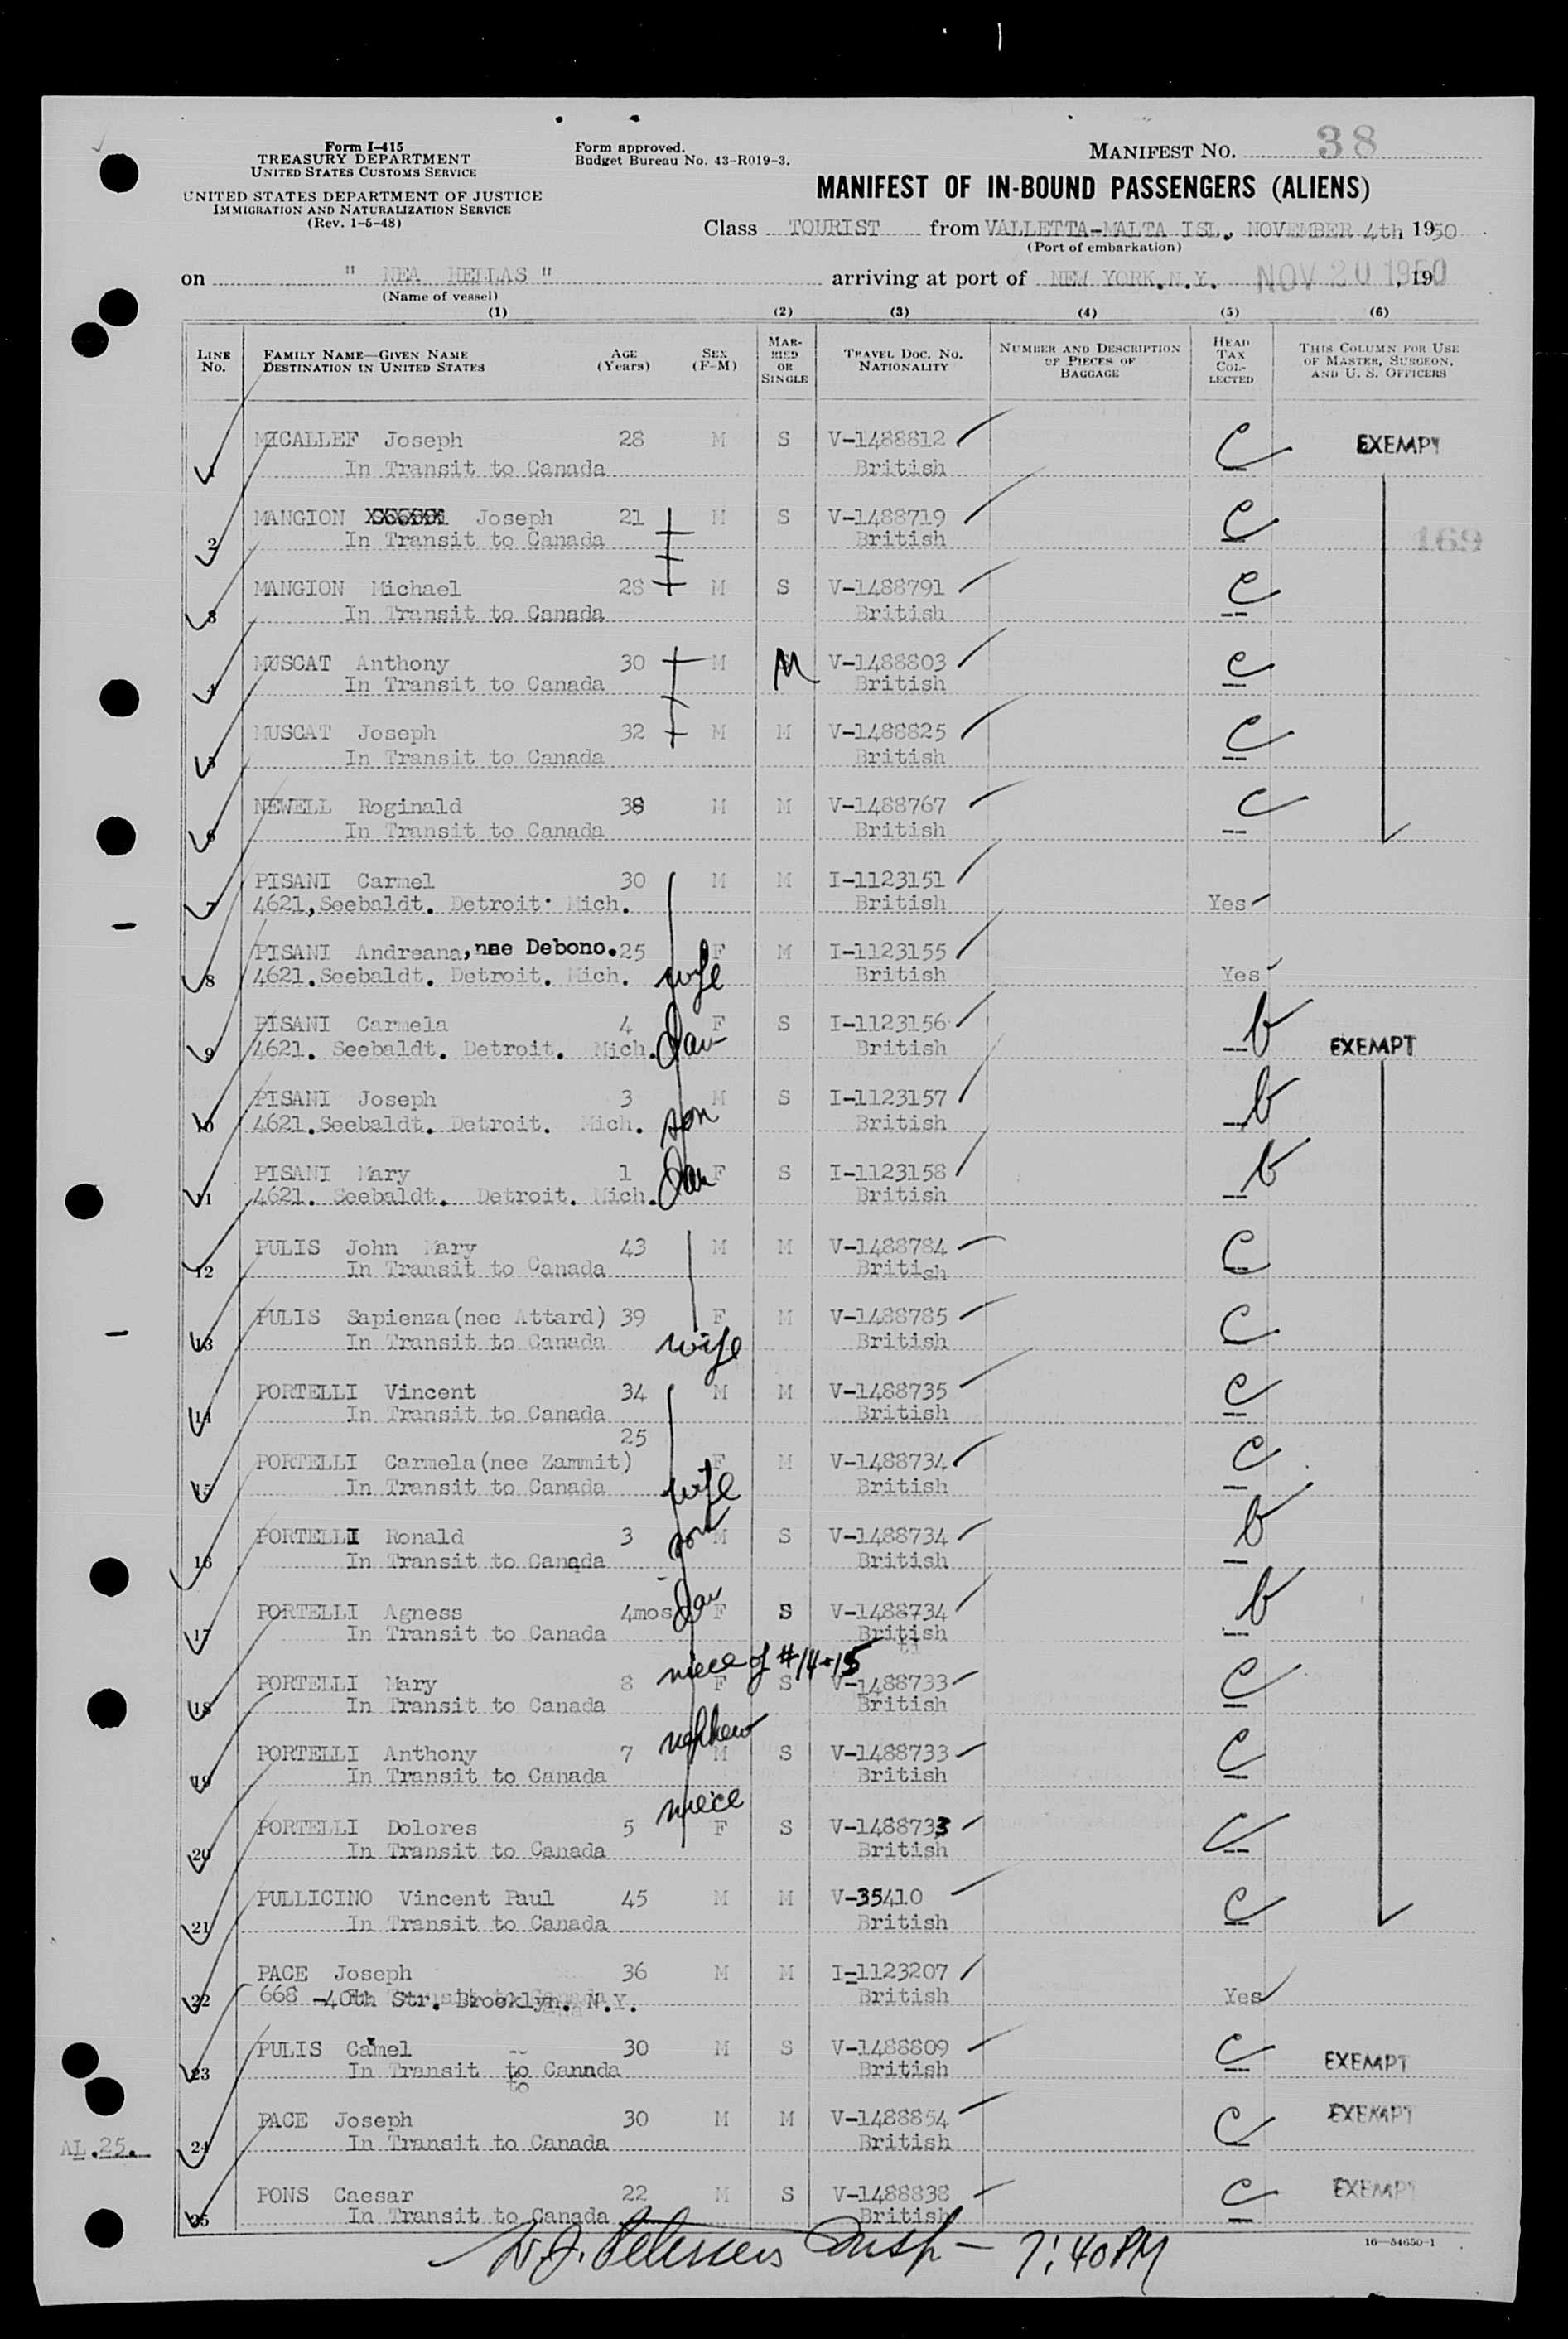 Form I-415
TREASURY DEPARTMENT
UNITED STATES CUSTOMS SERVICE
UNITED STATES DEPARTMENT OF JUSTICE
IMMIGRATION AND NATURALIZATION SERVICE
(Rev. 1-5-48)
Form approved.
Budget Bureau No. 43-R019-3.
MANIFEST NO. 38
MANIFEST OF IN-BOUND PASSENGERS (ALIENS)
Class TOURIST from VALLETTA-MALTA ISL, NOVEMBER 4th 1950
(Port of embarkation)
on " NEA HELLAS " arriving at port of NEW YORK.N.Y. NOV 20 1950, 19
(Name of vessel)
(1) (2) (3) (4) (5) (6)
LINE No. FAMILY NAME—GIVEN NAME DESTINATION IN UNITED STATES AGE (Years) SEX (F-M) MARRIED OR SINGLE TRAVEL DOC. NO. NATIONALITY NUMBER AND DESCRIPTION OF PIECES OF BAGGAGE HEAD TAX COLLECTED THIS COLUMN FOR USE OF MASTER, SURGEON, AND U. S. OFFICERS
MICALLEF Joseph 28 M S V-1488812 C EXEMPT
1 In Transit to Canada British
MANGION Joseph 21 M S V-1488719 C
2 In Transit to Canada British 169
MANGION Michael 28 M S V-1488791 C
3 In Transit to Canada British
MUSCAT Anthony 30 M M V-1488803 C
4 In Transit to Canada British
MUSCAT Joseph 32 M M V-1488825 C
5 In Transit to Canada British
NEWELL Roginald 38 M M V-1488767 C
6 In Transit to Canada British
PISANI Carmel 30 M M I-1123151
7 4621,Seebaldt. Detroit. Mich. British Yes
PISANI Andreana, nae Debono. 25 F M I-1123155
8 4621.Seebaldt. Detroit. Mich. wife British Yes
PISANI Carmela 4 F S I-1123156 b
9 4621. Seebaldt. Detroit. Mich. Dau British EXEMPT
PISANI Joseph 3 M S I-1123157 b
10 4621.Seebaldt. Detroit. Mich. son British
PISANI Mary 1 Dau F S I-1123158 b
11 4621. Seebaldt. Detroit. Mich. British
PULIS John Mary 43 M M V-1488784 C
12 In Transit to Canada British
PULIS Sapienza(nee Attard) 39 F M V-1488785 C
13 In Transit to Canada wife British
PORTELLI Vincent 34 M M V-1488735 C
14 In Transit to Canada British
25
PORTELLI Carmela(nee Zammit) F M V-1488734 C
15 In Transit to Canada wife British
PORTELLI Ronald 3 son M S V-1488734 b
16 In Transit to Canada British
PORTELLI Agness 4mos Dau F S V-1488734 b
17 In Transit to Canada British
niece of #14+15
PORTELLI Mary 8 F S V-1488733 C
18 In Transit to Canada British
nephew
PORTELLI Anthony 7 M S V-1488733 C
19 In Transit to Canada British
niece
PORTELLI Dolores 5 F S V-1488733 C
20 In Transit to Canada British
PULLICINO Vincent Paul 45 M M V-35410 C
21 In Transit to Canada British
PACE Joseph 36 M M I-1123207
22 668 -40th Str. Brooklyn. N.Y. British Yes
PULIS Camel 30 M S V-1488809 C EXEMPT
23 In Transit to Canada British
to
PACE Joseph 30 M M V-1488854 C EXEMPT
24 In Transit to Canada British
AL.25.
PONS Caesar 22 M S V-1488838 C EXEMPT
25 In Transit to Canada British
16—54650-1
W.J. Petersen Insp - 7:40 PM